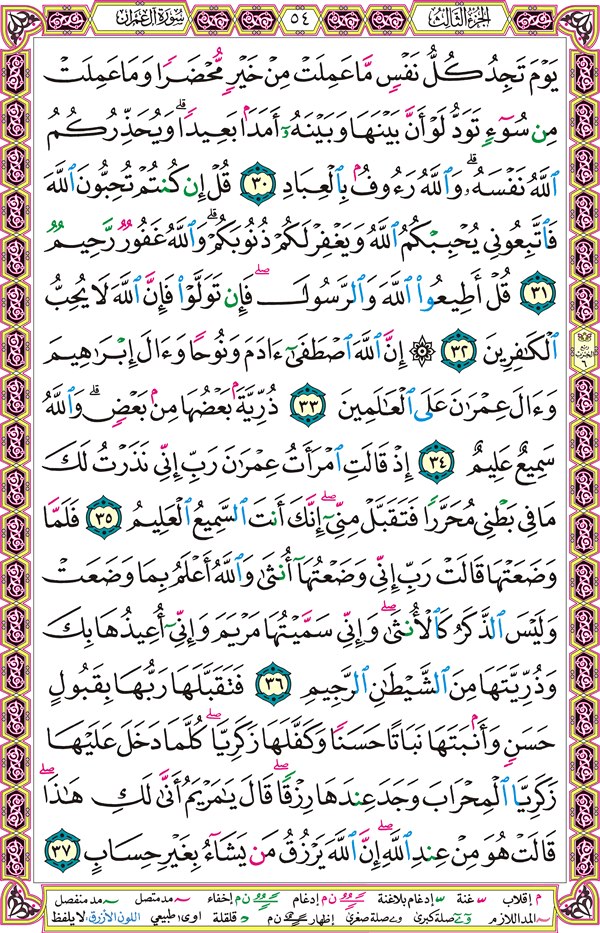 سورة آل عمران
٥٤
الجزء الثالث
يَوْمَ تَجِدُ كُلُّ نَفْسٍ مَّا عَمِلَتْ مِنْ خَيْرٍ مُّحْضَرًا وَمَا عَمِلَتْ
مِن سُوٓءٍ تَوَدُّ لَوْ أَنَّ بَيْنَهَا وَبَيْنَهُۥٓ أَمَدَۢا بَعِيدًا ۗ وَيُحَذِّرُكُمُ
ٱللَّهُ نَفْسَهُۥ ۗ وَٱللَّهُ رَءُوفُۢ بِٱلْعِبَادِ ٣٠ قُلْ إِن كُنتُمْ تُحِبُّونَ ٱللَّهَ
فَٱتَّبِعُونِي يُحْبِبْكُمُ ٱللَّهُ وَيَغْفِرْ لَكُمْ ذُنُوبَكُمْ ۗ وَٱللَّهُ غَفُورٌ رَّحِيمٌ
٣١ قُلْ أَطِيعُوا۟ ٱللَّهَ وَٱلرَّسُولَ ۖ فَإِن تَوَلَّوْا۟ فَإِنَّ ٱللَّهَ لَا يُحِبُّ
ٱلْكَافِرِينَ ٣٢ ۞ إِنَّ ٱللَّهَ ٱصْطَفَىٰٓ ءَادَمَ وَنُوحًا وَءَالَ إِبْرَاهِيمَ
وَءَالَ عِمْرَانَ عَلَى ٱلْعَالَمِينَ ٣٣ ذُرِّيَّةَۢ بَعْضُهَا مِنۢ بَعْضٍ ۗ وَٱللَّهُ
سَمِيعٌ عَلِيمٌ ٣٤ إِذْ قَالَتِ ٱمْرَأَتُ عِمْرَانَ رَبِّ إِنِّي نَذَرْتُ لَكَ
مَا فِي بَطْنِي مُحَرَّرًا فَتَقَبَّلْ مِنِّيٓ ۖ إِنَّكَ أَنتَ ٱلسَّمِيعُ ٱلْعَلِيمُ ٣٥ فَلَمَّا
وَضَعَتْهَا قَالَتْ رَبِّ إِنِّي وَضَعْتُهَآ أُنثَىٰ وَٱللَّهُ أَعْلَمُ بِمَا وَضَعَتْ
وَلَيْسَ ٱلذَّكَرُ كَٱلْأُنثَىٰ ۖ وَإِنِّي سَمَّيْتُهَا مَرْيَمَ وَإِنِّيٓ أُعِيذُهَا بِكَ
وَذُرِّيَّتَهَا مِنَ ٱلشَّيْطَانِ ٱلرَّجِيمِ ٣٦ فَتَقَبَّلَهَا رَبُّهَا بِقَبُولٍ
حَسَنٍ وَأَنۢبَتَهَا نَبَاتًا حَسَنًا وَكَفَّلَهَا زَكَرِيَّا ۖ كُلَّمَا دَخَلَ عَلَيْهَا
زَكَرِيَّا ٱلْمِحْرَابَ وَجَدَ عِندَهَا رِزْقًا ۖ قَالَ يَامَرْيَمُ أَنَّىٰ لَكِ هَاذَا ۖ
قَالَتْ هُوَ مِنْ عِندِ ٱللَّهِ ۖ إِنَّ ٱللَّهَ يَرْزُقُ مَن يَشَآءُ بِغَيْرِ حِسَابٍ ٣٧
م إقلاب غنة إدغام بلاغنة ن م إدغام ن م إخفاء مد متصل مد منفصل
المد اللازم صلة كبرى صلة صغرى إظهار ن م قلقلة اوى: طبيعي اللون الأزرق: لا يلفظ